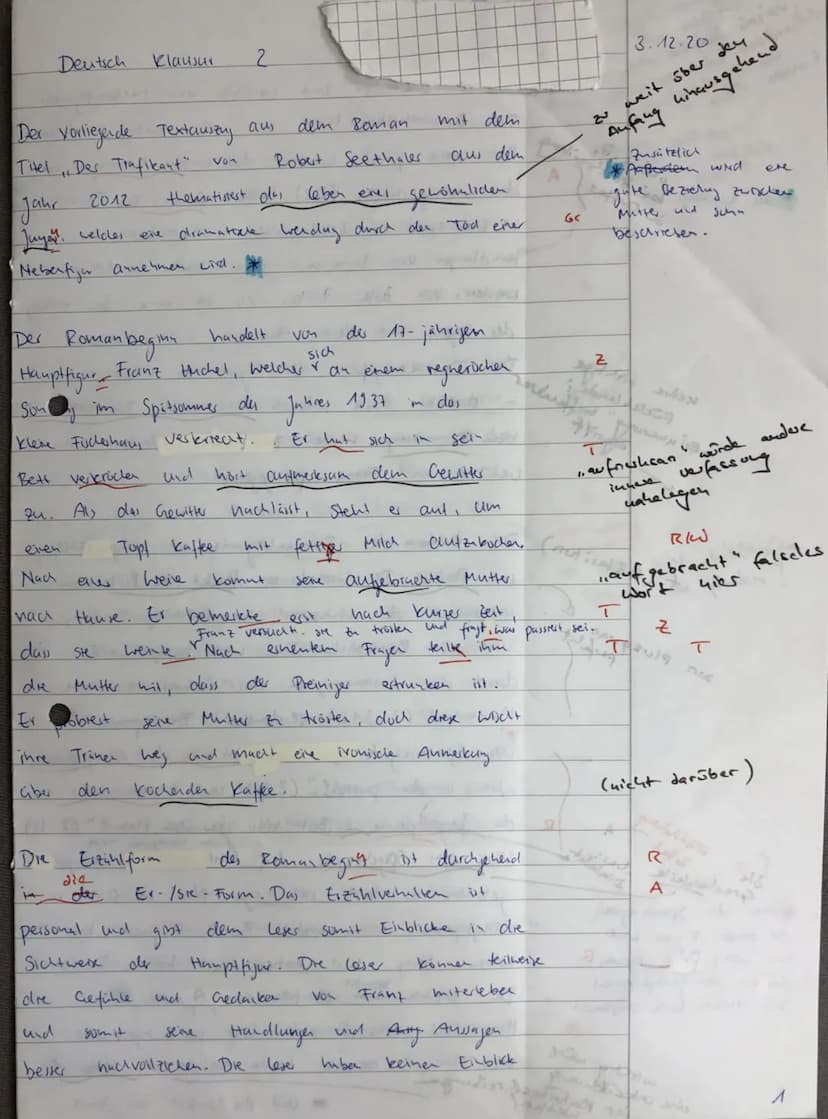 Deutsch Klausur 2
3.12.20
zu weit über den
Anfang hinausgehend
Der vorliegende Textauszug aus dem Roman mit dem
Titel „Der Trafikant" von Robert Seethaler aus dem
Jahr 2012 thematisiert das Leben eines gewöhnlichen
Jungen, welcher eine dramatische Wendung durch den Tod einer
Gr
Nebenfigur annehmen wird. *
* Außerdem Zusätzlich wird eine
gute Beziehung zwischen
Mutter und Sohn
beschrieben.
Der Romanbeginn handelt von der 17-jährigen
Hauptfigur Franz Huchel, welcher sich an einem regnerischen
Z
im Spätsommer des Jahres 1937 in das
kleine Fischerhaus verkriecht. Er hat sich in sein
T
Bett verkrochen und hört aufmerksam dem Gewitter
„aufmerksam" würde andere
innere Verfassung
nahelegen
zu. Als das Gewitter nachlässt, steht er auf, um
einen Topf Kaffee mit fettiger Milch aufzukochen.
R/W
Nach einer Weile kommt seine aufgebrachte Mutter
„aufgebracht" falsches
Wort hier
nach Hause. Er bemerkte erst nach kurzer Zeit,
T
Franz versucht sie zu trösten und fragt, was passiert sei.
Z
dass sie weinte. Nach erneutem Fragen teilte ihm
T T
die Mutter mit, dass der Preininger ertrunken ist.
Er probiert seine Mutter zu trösten, doch diese wischt
ihre Tränen weg und macht eine ironische Anmerkung
über den kochenden Kaffee.
(nicht darüber)
Die Erzählform des Romanbeginn ist durchgehend
R
in der die Er-/Sie-Form. Das Erzählverhalten ist
A
personal und gibt dem Leser somit Einblicke in die
Sichtweise der Hauptfigur. Die Leser können teilweise
die Gefühle und Gedanken von Franz miterleben
und somit seine Handlungen und Aussagen
besser nachvollziehen. Die Leser haben keinen Einblick
1